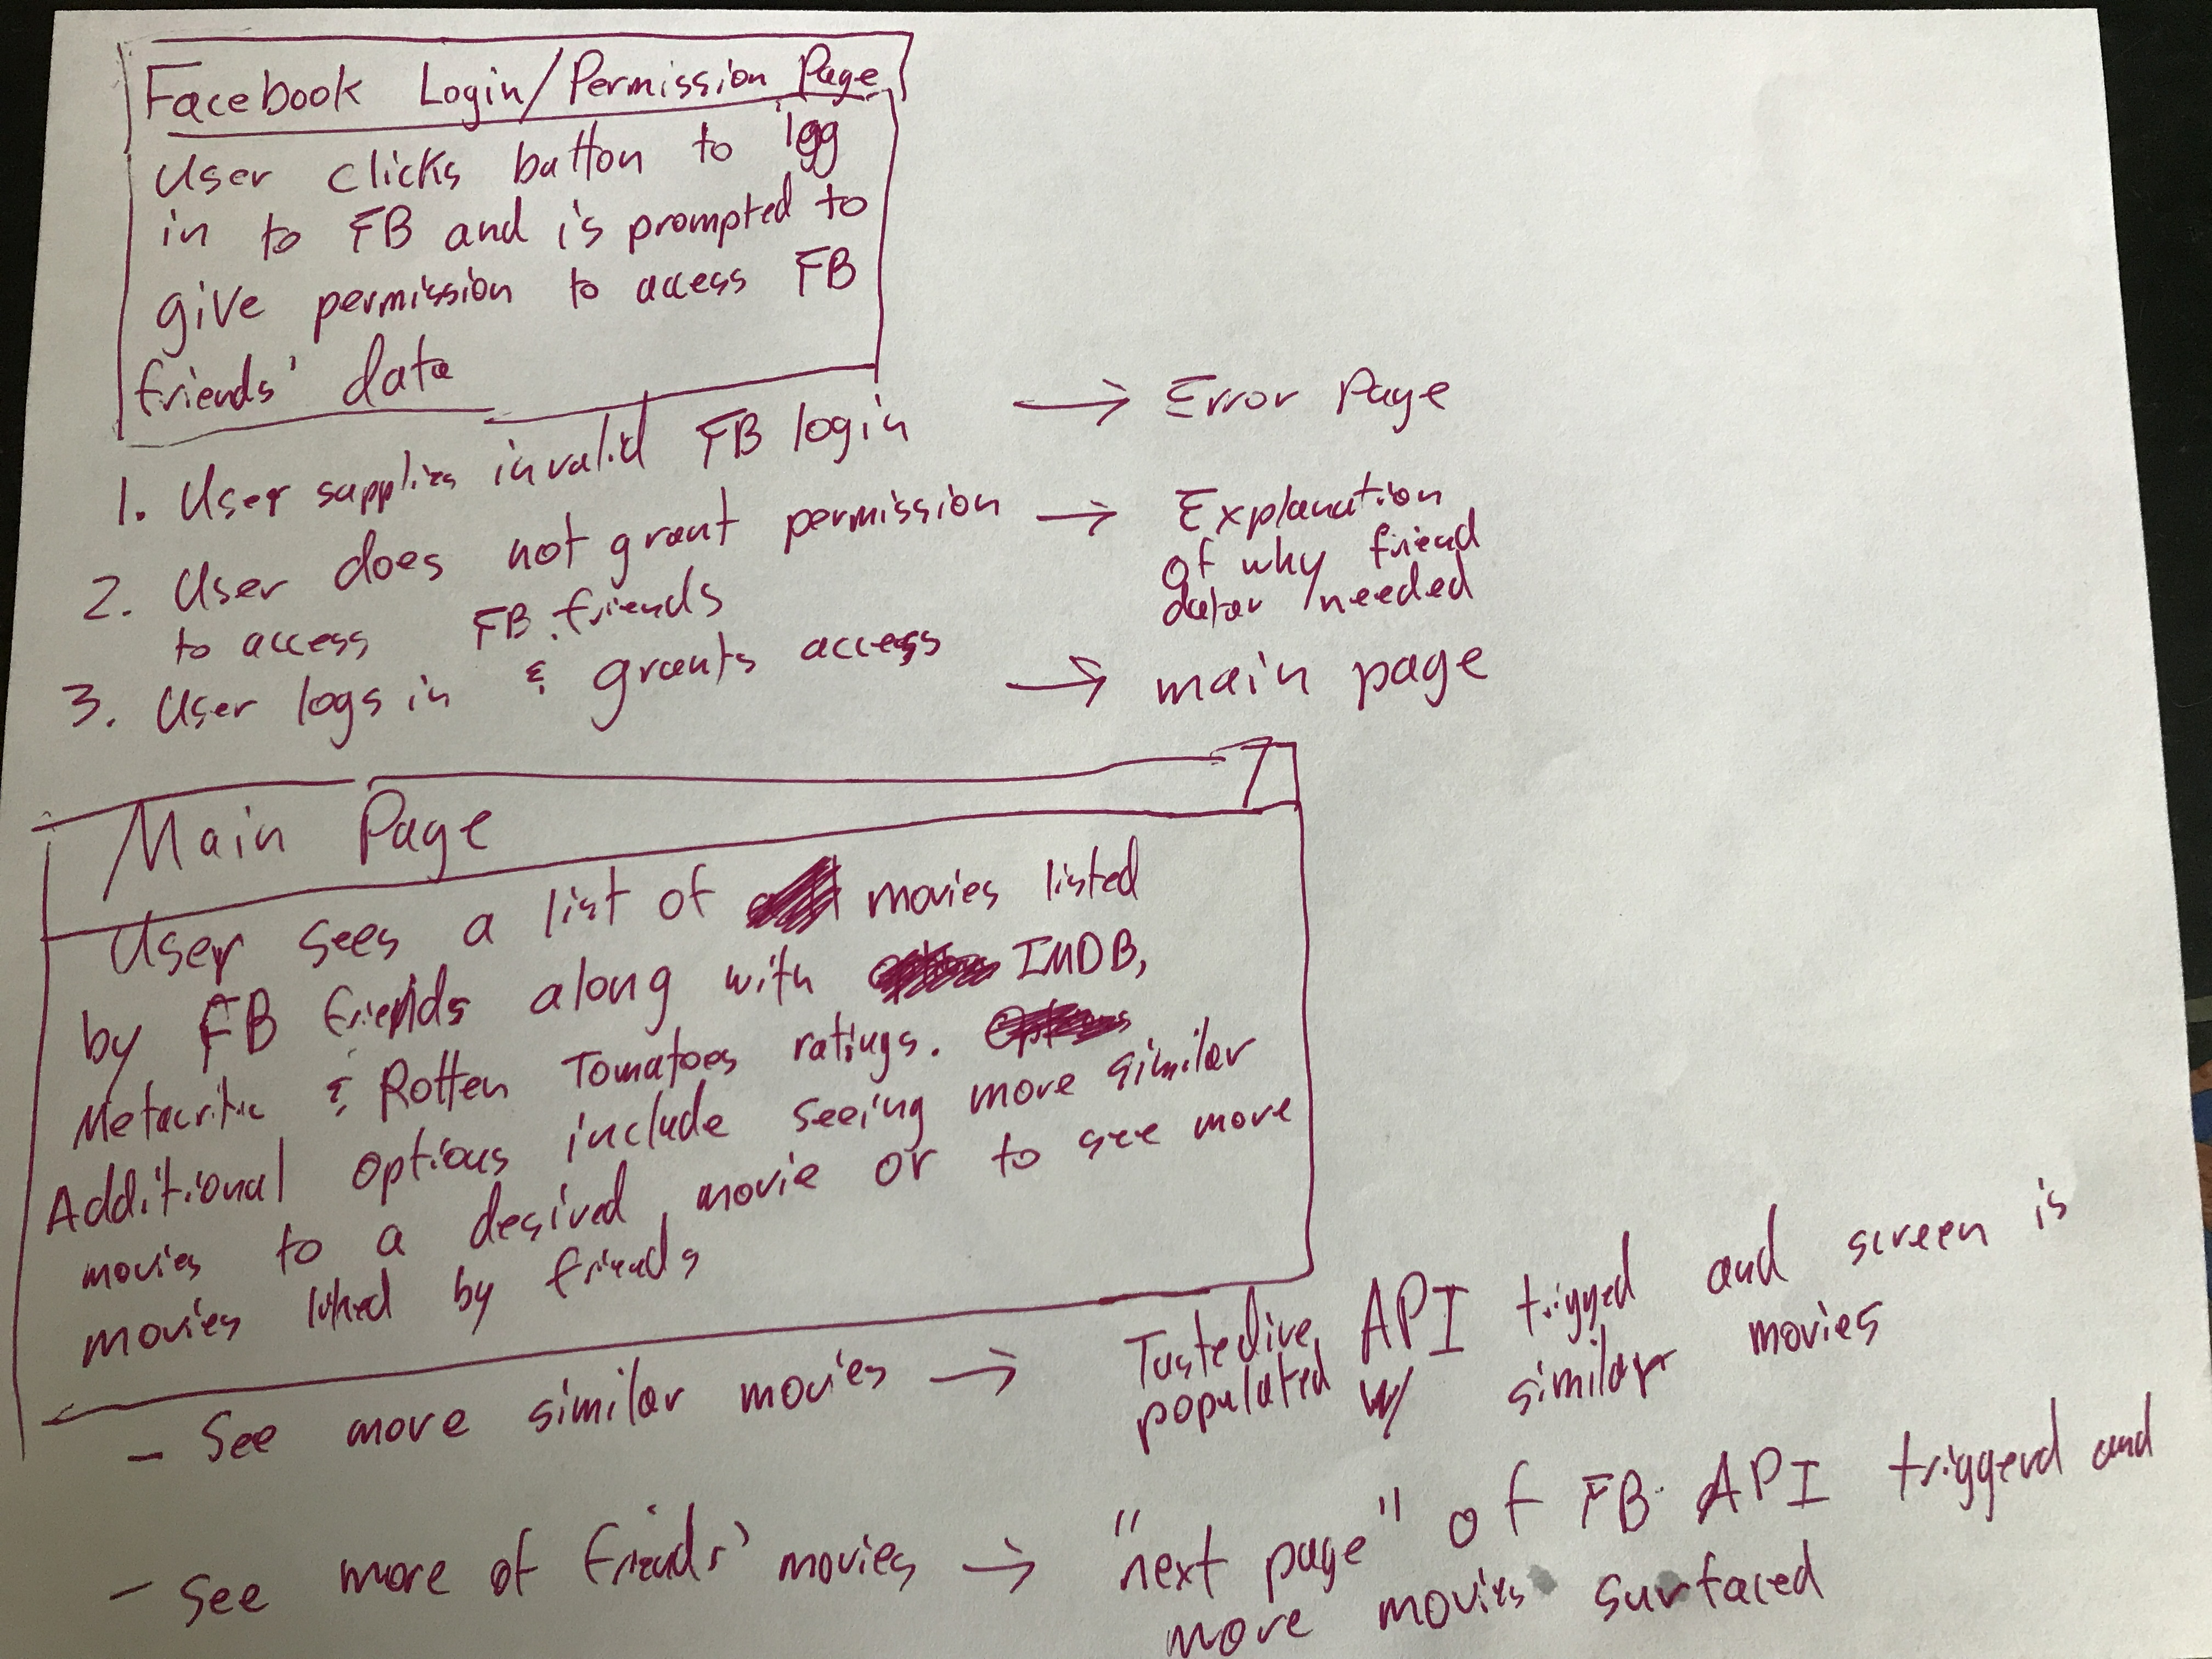 Facebook Login/Permission Page
User clicks button to log
in to FB and is prompted to
give permission to access FB
friends' data
1. User supplies invalid FB login → Error Page
2. User does not grant permission → Explanation
to access FB friends of why friend
data needed
3. User logs in & grants access → main page
Main Page
User sees a list of movies listed
by FB friends along with IMDB,
Metacritic & Rotten Tomatoes ratings.
Additional options include seeing more similar
movies to a desired movie or to see more
movies liked by friends
- See more similar movies → Tastedive API trigged and screen is
populated w/ similar movies
- See more of friends' movies → "next page" of FB API triggered and
more movies surfaced